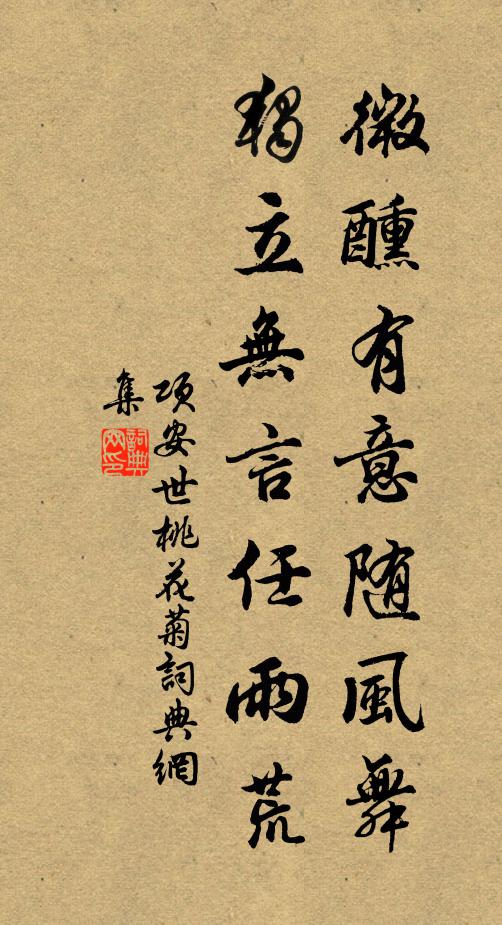 微醺有意随風舞
獨立無言任雨荒
項安世桃花菊詞典網
集
詞典網印